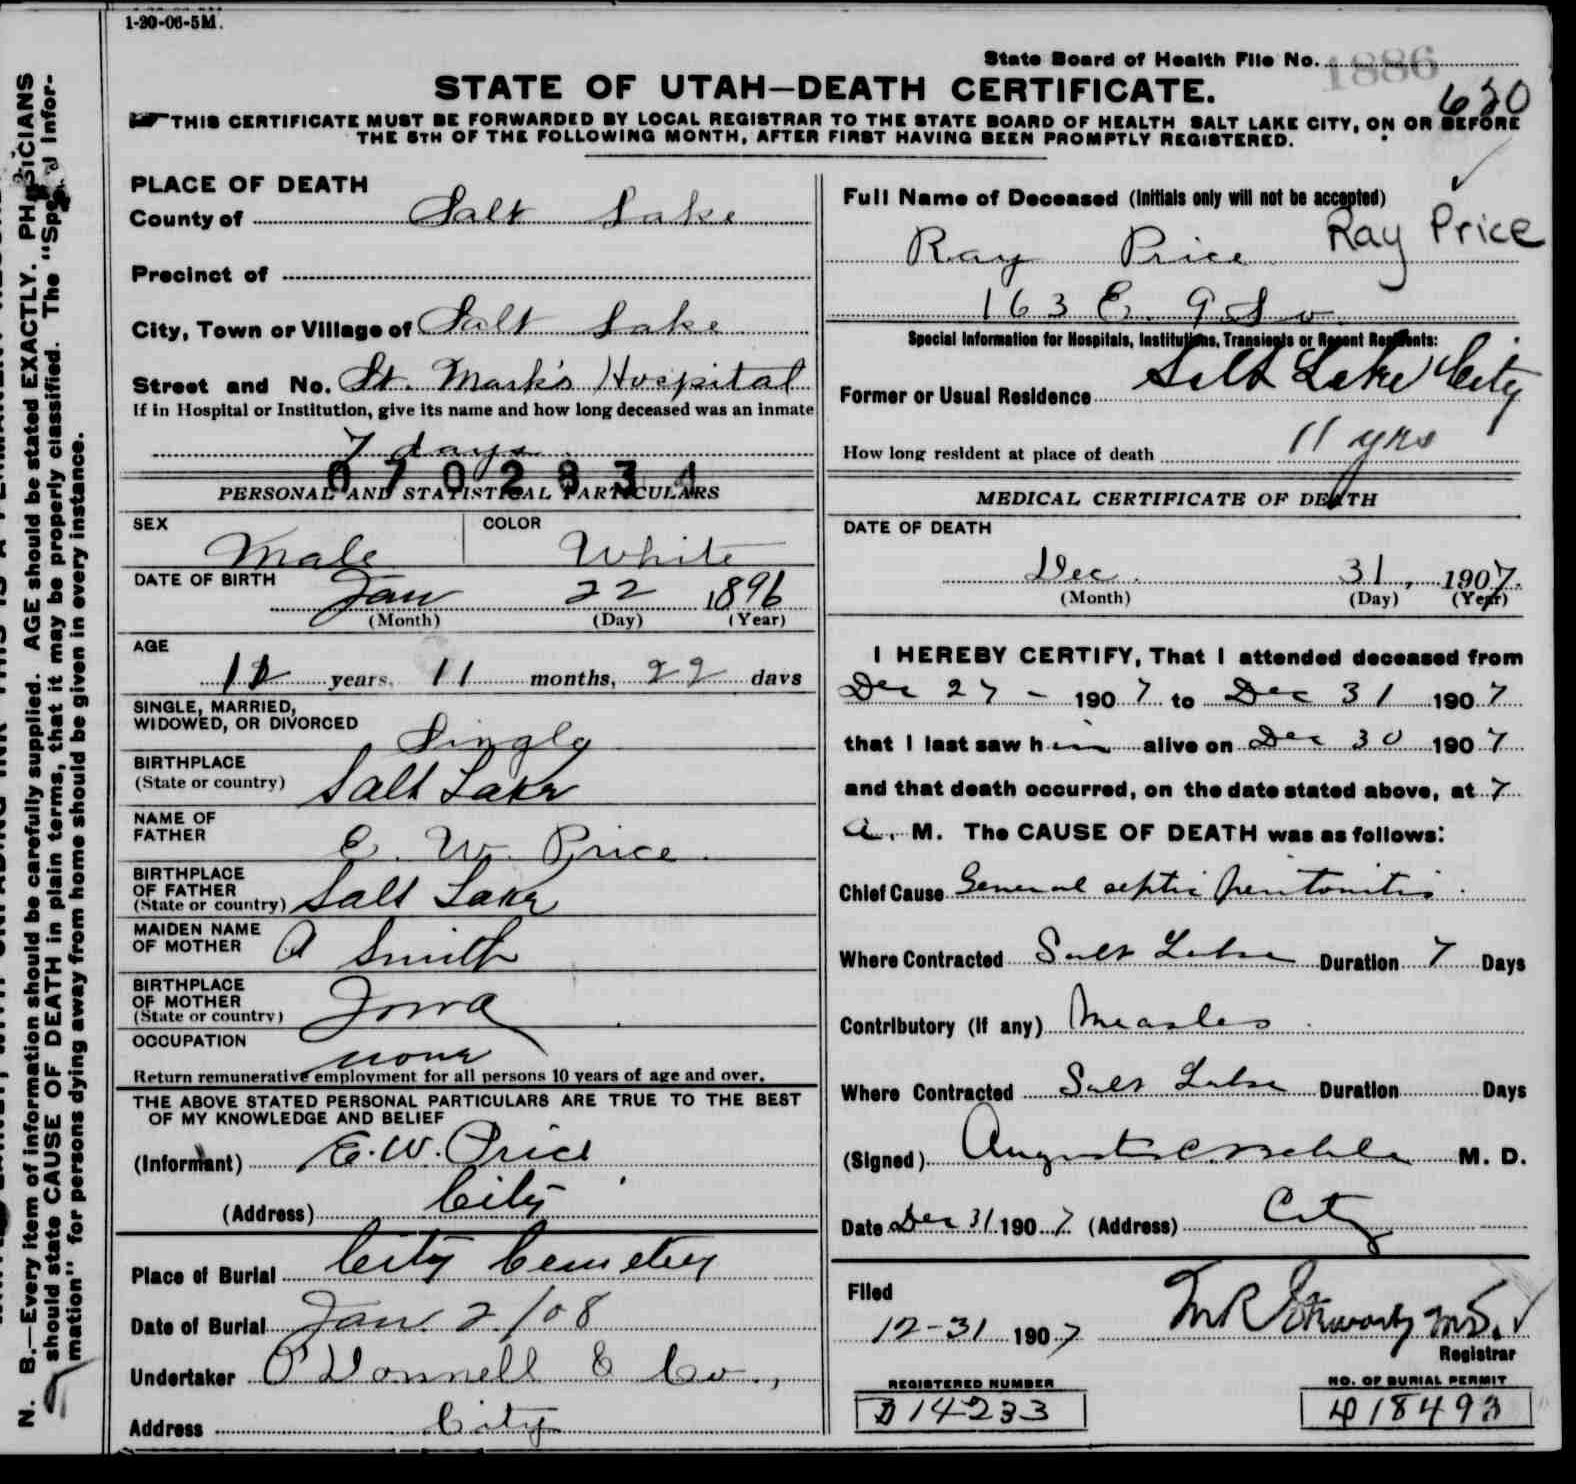 1-20-06-5M.
State Board of Health File No. 1886
STATE OF UTAH—DEATH CERTIFICATE.
620
THIS CERTIFICATE MUST BE FORWARDED BY LOCAL REGISTRAR TO THE STATE BOARD OF HEALTH SALT LAKE CITY, ON OR BEFORE
THE 5TH OF THE FOLLOWING MONTH, AFTER FIRST HAVING BEEN PROMPTLY REGISTERED.
PLACE OF DEATH
County of Salt Lake
Precinct of
City, Town or Village of Salt Lake
Street and No. St. Mark's Hospital
If in Hospital or Institution, give its name and how long deceased was an inmate
7 days
0702834
PERSONAL AND STATISTICAL PARTICULARS
SEX
Male
COLOR
White
DATE OF BIRTH
Jan 22 1896
(Month) (Day) (Year)
AGE
years, 11 months, 22 days
SINGLE, MARRIED,
WIDOWED, OR DIVORCED
Single
BIRTHPLACE
(State or country) Salt Lake
NAME OF
FATHER
E. W. Price
BIRTHPLACE
OF FATHER
(State or country) Salt Lake
MAIDEN NAME
OF MOTHER A Smith
BIRTHPLACE
OF MOTHER
(State or country) Iowa
OCCUPATION
none
Return remunerative employment for all persons 10 years of age and over.
THE ABOVE STATED PERSONAL PARTICULARS ARE TRUE TO THE BEST
OF MY KNOWLEDGE AND BELIEF
(Informant) E. W. Price
(Address) City
Place of Burial City Cemetery
Date of Burial Jan. 2/08
Undertaker O'Donnell & Co.,
Address City
Full Name of Deceased (Initials only will not be accepted)
Ray Price Ray Price
163 E. 9 So.
Special Information for Hospitals, Institutions, Transients or Recent Residents:
Former or Usual Residence Salt Lake City
How long resident at place of death 11 yrs
MEDICAL CERTIFICATE OF DEATH
DATE OF DEATH
Dec. 31, 1907.
(Month) (Day) (Year)
I HEREBY CERTIFY, That I attended deceased from
Dec 27 - 1907 to Dec 31 1907
that I last saw him alive on Dec 30 1907
and that death occurred, on the date stated above, at 7
a. M. The CAUSE OF DEATH was as follows:
Chief Cause General septic peritonitis.
Where Contracted Salt Lake Duration 7 Days
Contributory (if any) Measles.
Where Contracted Salt Lake Duration Days
(Signed) M. D.
Date Dec 31 1907 (Address) City
Filed
12-31 1907
Registrar
REGISTERED NUMBER
D14233
NO. OF BURIAL PERMIT
D18493
N. B.—Every item of information should be carefully supplied. AGE should be stated EXACTLY. PHYSICIANS
should state CAUSE OF DEATH in plain terms, that it may be properly classified. The "Special Infor-
mation" for persons dying away from home should be given in every instance.